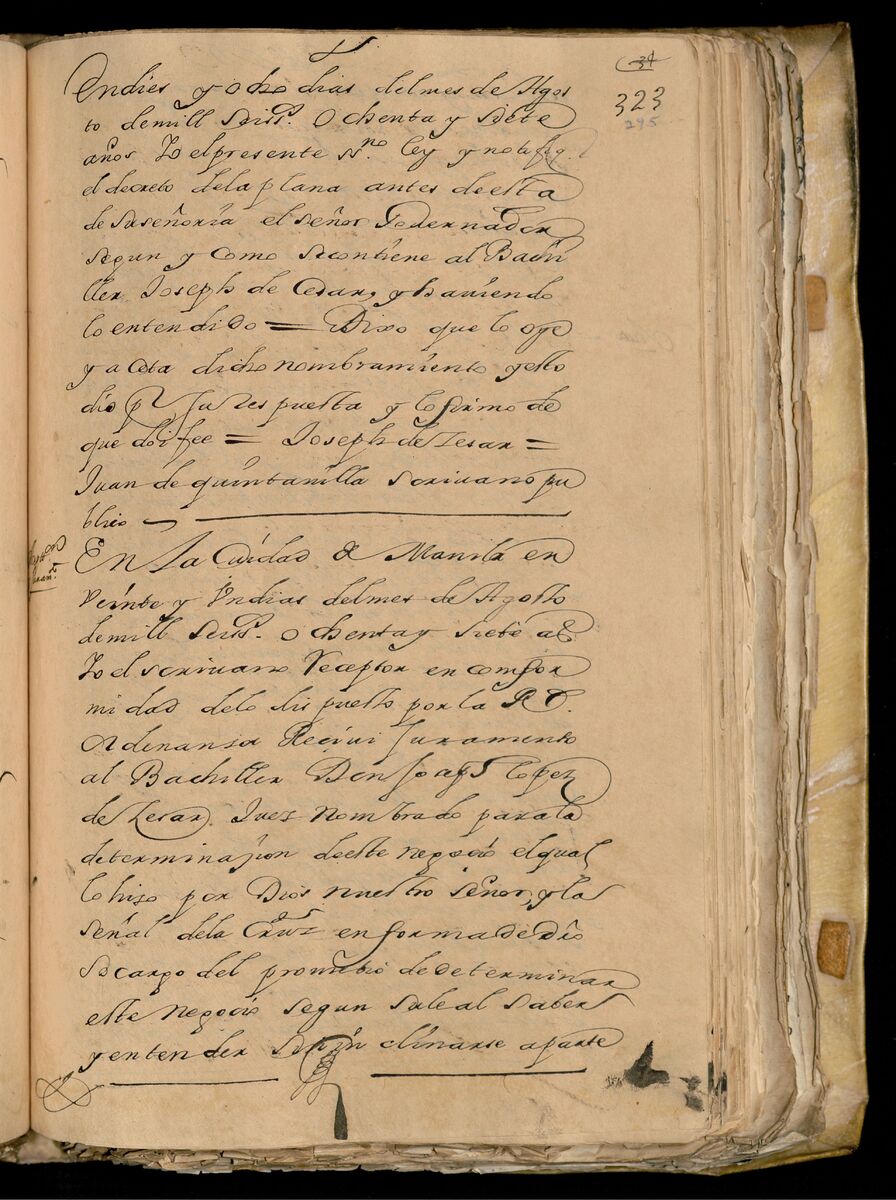 34
323
295
Endies y ocho dias delmes de Agos
to demill Seiss. Ochenta y Siete
años Yo elpresente ssno. ley y notifiq.
el decreto dela plana antes deesta
de suseñoria el señor Governador
segun y como secontiene al Bachi
ller Joseph de Cesar, y haviendo
lo entendido = Dixo que lo oye
y aceta dicho nombramiento yesto
dio pr Su respuesta y lo firmo de
que doi fee = Joseph de Zesar =
Juan de quintanilla scrivano pu
blico
En La Ciudad de Manila en
veinte y Un dias delmes de Agosto
demill Seiss. ochenta y siete as.
Yo el scrivano Receptor en confor
midad delo dispuesto por la Rl.
Ordenansa Recivi Juramento
al Bachiller Don Joseph lopez
de Zesar. Juez Nombrado parala
determinazion deeste negocio elqual
lo hizo por Dios nuestro señor, y la
señal dela Cruz en forma de dro
socargo del prometio dedeterminar
este negocio segun suleal saber
y entender sin inclinarse aparte